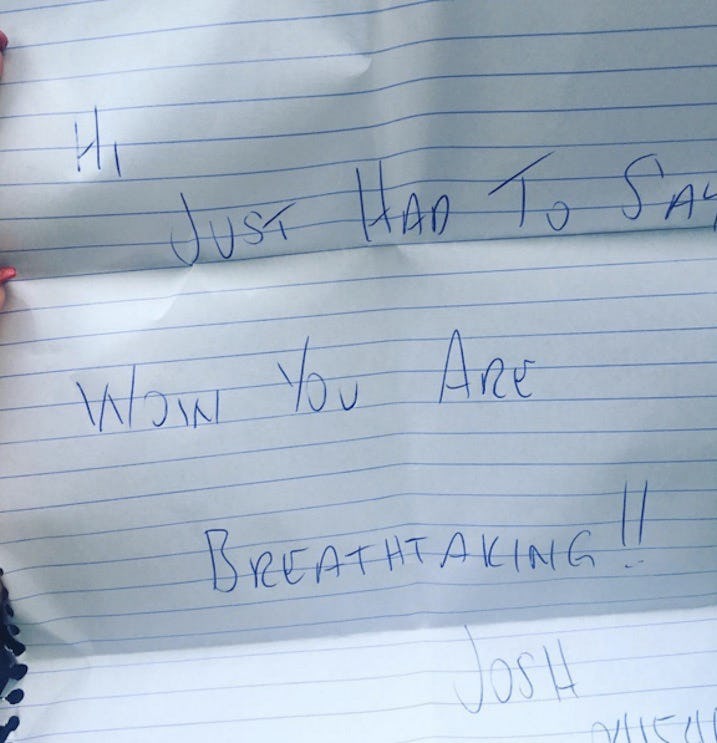 Hi
Just Had To Say
Wow You Are
Breathtaking!!
Josh